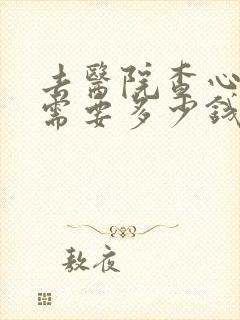 去醫院查心
需要多少錢
敖夜